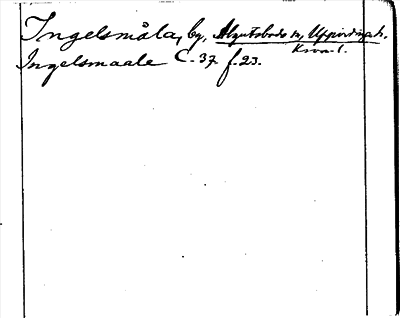 Ingelsmåla, by, Älgutsboda sn, Uppvidinge h.
Kron. l.
Ingelsmaale C. 37 f. 23.